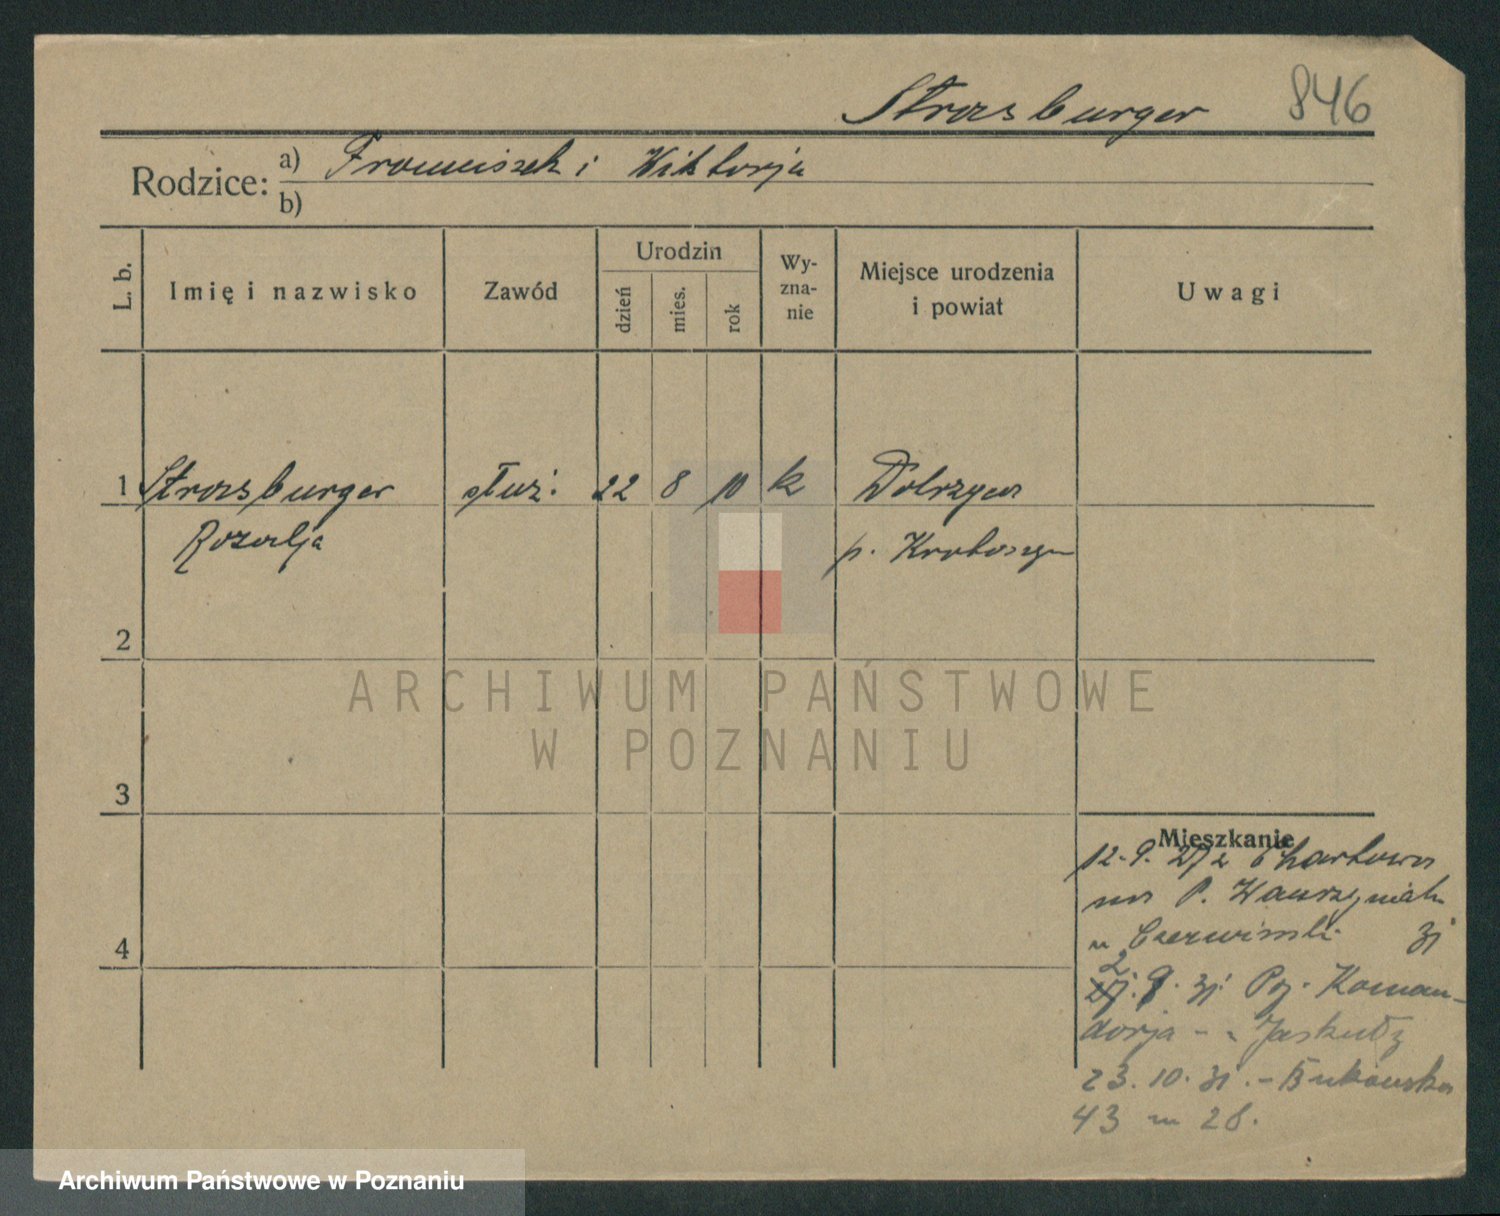 Strasburger 846
Rodzice: a) Franciszek i Wiktorja
b)
L. b. Imię i nazwisko Zawód Urodzin dzień mies. rok Wy-zna-nie Miejsce urodzenia i powiat Uwagi
1 Strasburger służ. 22 8 10 k Dobrzyca
Rozalja p. Krotoszyn
2
ARCHIWUM PAŃSTWOWE
W POZNANIU
3
Mieszkanie
12. 9. z Chartowa
na P.
u Czerwiński 31
4
2. 9. 31. Pl. Koman-
dorja - -
23. 10. 31. - Bukowska
43 m 28.
Archiwum Państwowe w Poznaniu